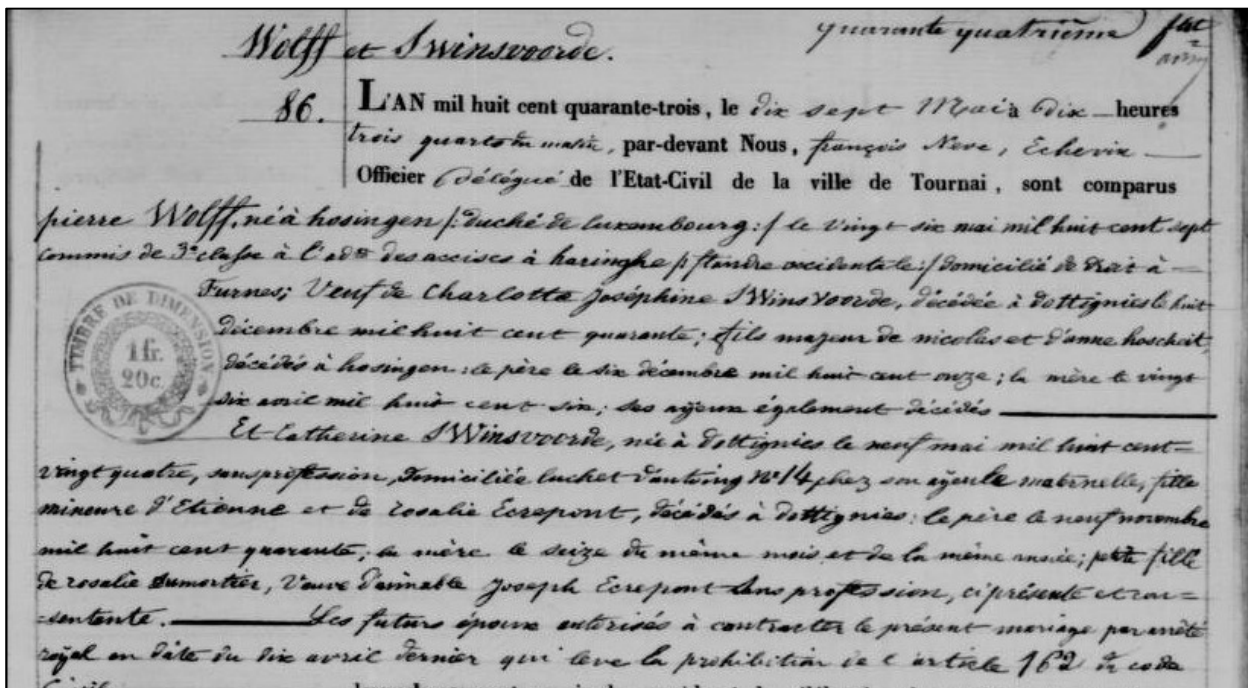 quarante quatrième
Wolff et SWinsvoorde.
86.
L'AN mil huit cent quarante-trois, le dix sept Mai à dix heures
trois quarts du matin, par-devant Nous, françois Neve, Echevin
Officier Délégué de l'Etat-Civil de la ville de Tournai, sont comparus
pierre Wolff, né à hosingen /: duché de luxembourg :/ le vingt six mai mil huit cent sept
commis de 3e classe à l'adon des accises à haringhe /: flandre occidentale :/ domicilié de droit à
Furnes; Veuf de Charlotte Joséphine SWinsVoorde, décédée à dottignies le huit
décembre mil huit cent quarante; fils majeur de nicolas et d'anne hoscheit,
décédés à hosingen: le père le six décembre mil huit cent onze; la mère le vingt
six avril mil huit cent six; ses ayeux également décédés
TIMBRE DE DIMENSION
1 fr.
20 c.
Et Catherine SWinsvoorde, née à Dottignies le neuf mai mil huit cent-
vingt quatre, sans profession, domiciliée luchet d'antoing No 14 chez son ayeule maternelle, fille
mineure d'Etienne et de rosalie Ecrepont, décédés à Dottignies: le père le neuf novembre
mil huit cent quarante; la mère le seize du même mois et de la même année; petite fille
de rosalie dumortier, Veuve d'aimable Joseph Ecrepont sans profession, ci présente et con=
=sentante. Les futurs époux autorisés à contracter le présent mariage par arrêté
royal en date du dix avril dernier qui leve la prohibition de l'article 162 du code